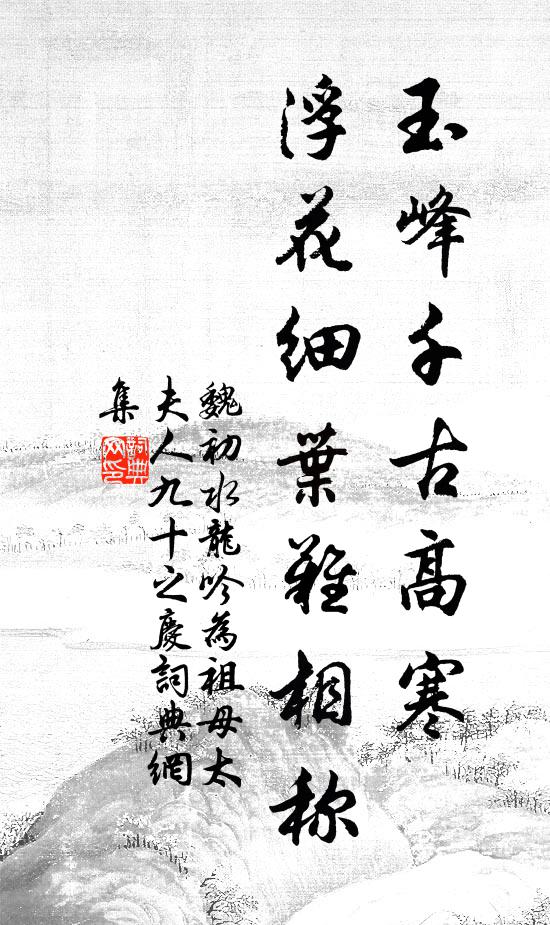 玉峰千古高寒
浮花细葉難相称
魏初水龍吟為祖母太
夫人九十之慶詞典網
集
詞典网印